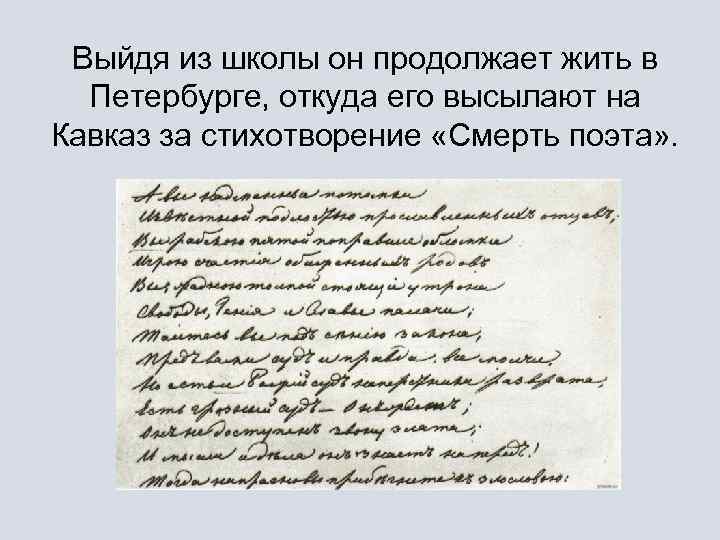 Выйдя из школы он продолжает жить в
Петербурге, откуда его высылают на
Кавказ за стихотворение «Смерть поэта» .
А вы надменные потомки
Извѣстной подлостью прославленныхъ отцовъ;
Вы рабскою пятой поправшие обломки
Игрою счастія обиженныхъ родовъ
Вы жадною толпой стоящіе у трона
Свободы, Генія и Славы палачи;
Таитесь вы подъ сѣнію закона,
Предъ вами судъ и правда, все молчи.
Но есть и Божій судъ наперсники разврата,
Есть грозный судъ –
Онъ не доступенъ звону злата;
И мысли и дѣла онъ знаетъ на предъ!
Тогда напрасно вы прибѣгнете къ злословью: